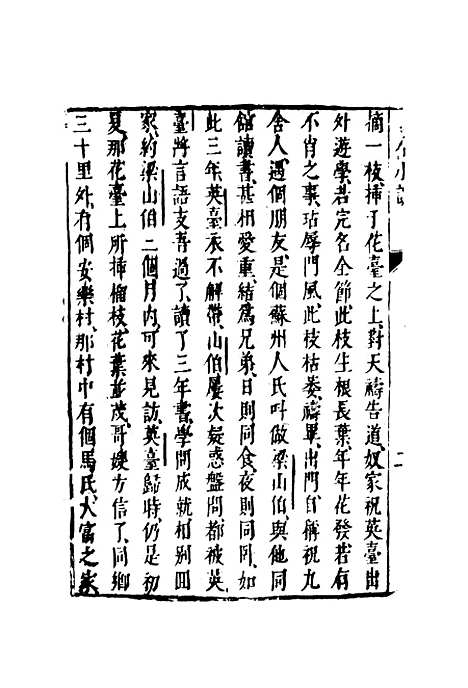 摘一枝、挿于花臺之上、對天禱告道、奴家祝英臺出
外遊學、若完名全節、此枝生根長葉、年年花發、若有
不肖之事、玷辱門風、此枝枯萎、禱畢、出門、自稱祝九
舍人、遇個朋友、是個蘇州人氏、叫做梁山伯、與他同
館讀書、甚相愛重、結爲兄弟、日則同食、夜則同卧、如
此三年、英臺衣不解帶、山伯屢次疑惑盤問、都被英
臺將言語支吾過了、讀了三年書、學問成就、相別回
家、約梁山伯二個月内、可來見訪、英臺歸時、仍是初
夏、那花臺上所挿榴枝、花葉並茂、哥嫂方信了、同鄉
三十里外、有個安樂村、那村中有個馬氏、大富之家